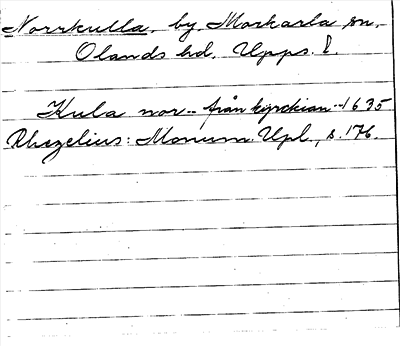 Norrkulla, by, Morkarla sn,
Olands hd, Upps. l.
Kula nor-- från kyrckian --1635
Rhezelius: Monum. Upl., s. 176.